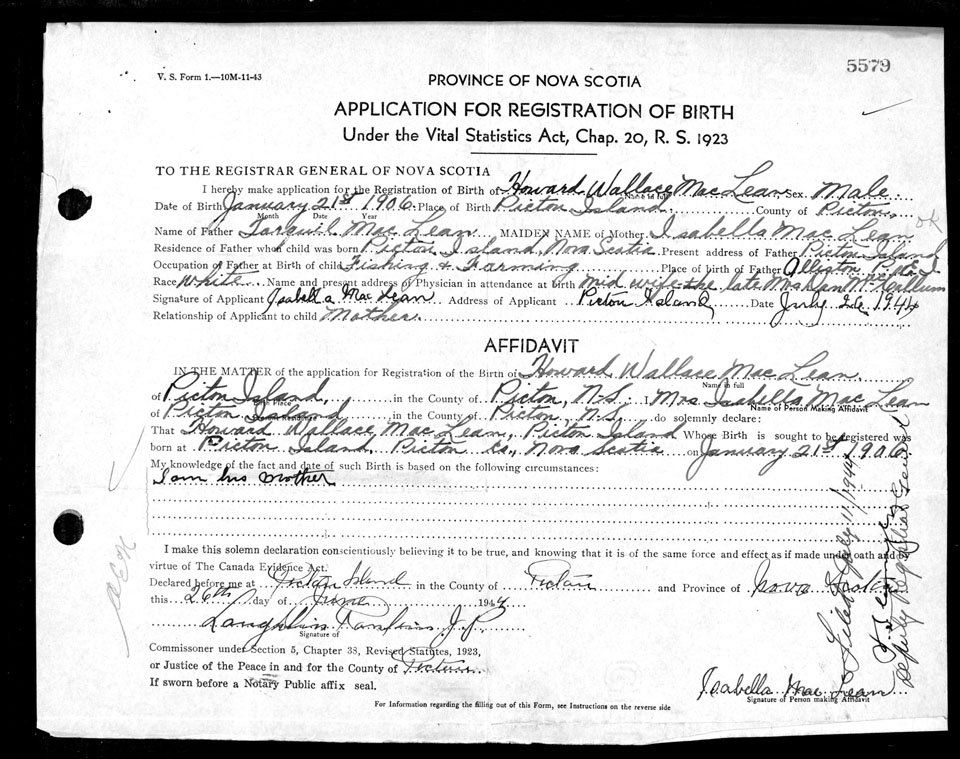 5579
V. S. Form 1.—10M-11-43
PROVINCE OF NOVA SCOTIA
APPLICATION FOR REGISTRATION OF BIRTH
Under the Vital Statistics Act, Chap. 20, R. S. 1923
TO THE REGISTRAR GENERAL OF NOVA SCOTIA
I hereby make application for the Registration of Birth of Howard Wallace MacLean Sex Male
Name in full
Date of Birth January 21st 1906 Place of Birth Picton Island County of Picton
Month Date Year
ok
Name of Father MacLean MAIDEN NAME of Mother Isabella MacLean
Residence of Father when child was born Picton Island Nova Scotia Present address of Father Picton Island
Occupation of Father at Birth of child Fishing & Farming Place of birth of Father
Race White Name and present address of Physician in attendance at birth Mid wife the late Mrs Dan McCallum
Signature of Applicant Isabella MacLean Address of Applicant Picton Island Date 1944
Relationship of Applicant to child Mother
AFFIDAVIT
IN THE MATTER of the application for Registration of the Birth of Howard Wallace MacLean
Name in full
of Picton Island, in the County of Picton, N.S. Mrs Isabella MacLean
Birth Place Name of Person Making Affidavit
of Picton Island in the County of Picton, N.S. do solemnly declare:
That Howard Wallace MacLean, Picton Island Whose Birth is sought to be registered was
born at Picton Island, Picton Co., Nova Scotia on January 21st 1906
My knowledge of the fact and date of such Birth is based on the following circumstances:
I am his mother
I make this solemn declaration conscientiously believing it to be true, and knowing that it is of the same force and effect as if made under oath and by
virtue of The Canada Evidence Act.
Declared before me at Pictou Island in the County of Pictou and Province of Nova Scotia
this 26th day of June 1944
Laughlin Rankin J.P.
Signature of
Commissoner under Section 5, Chapter 38, Revised Statutes, 1923,
or Justice of the Peace in and for the County of Pictou
If sworn before a Notary Public affix seal.
Isabella MacLean
Signature of Person making Affidavit
For Information regarding the filling out of this Form, see Instructions on the reverse side
Filed July 11/1944
Deputy Registrar General